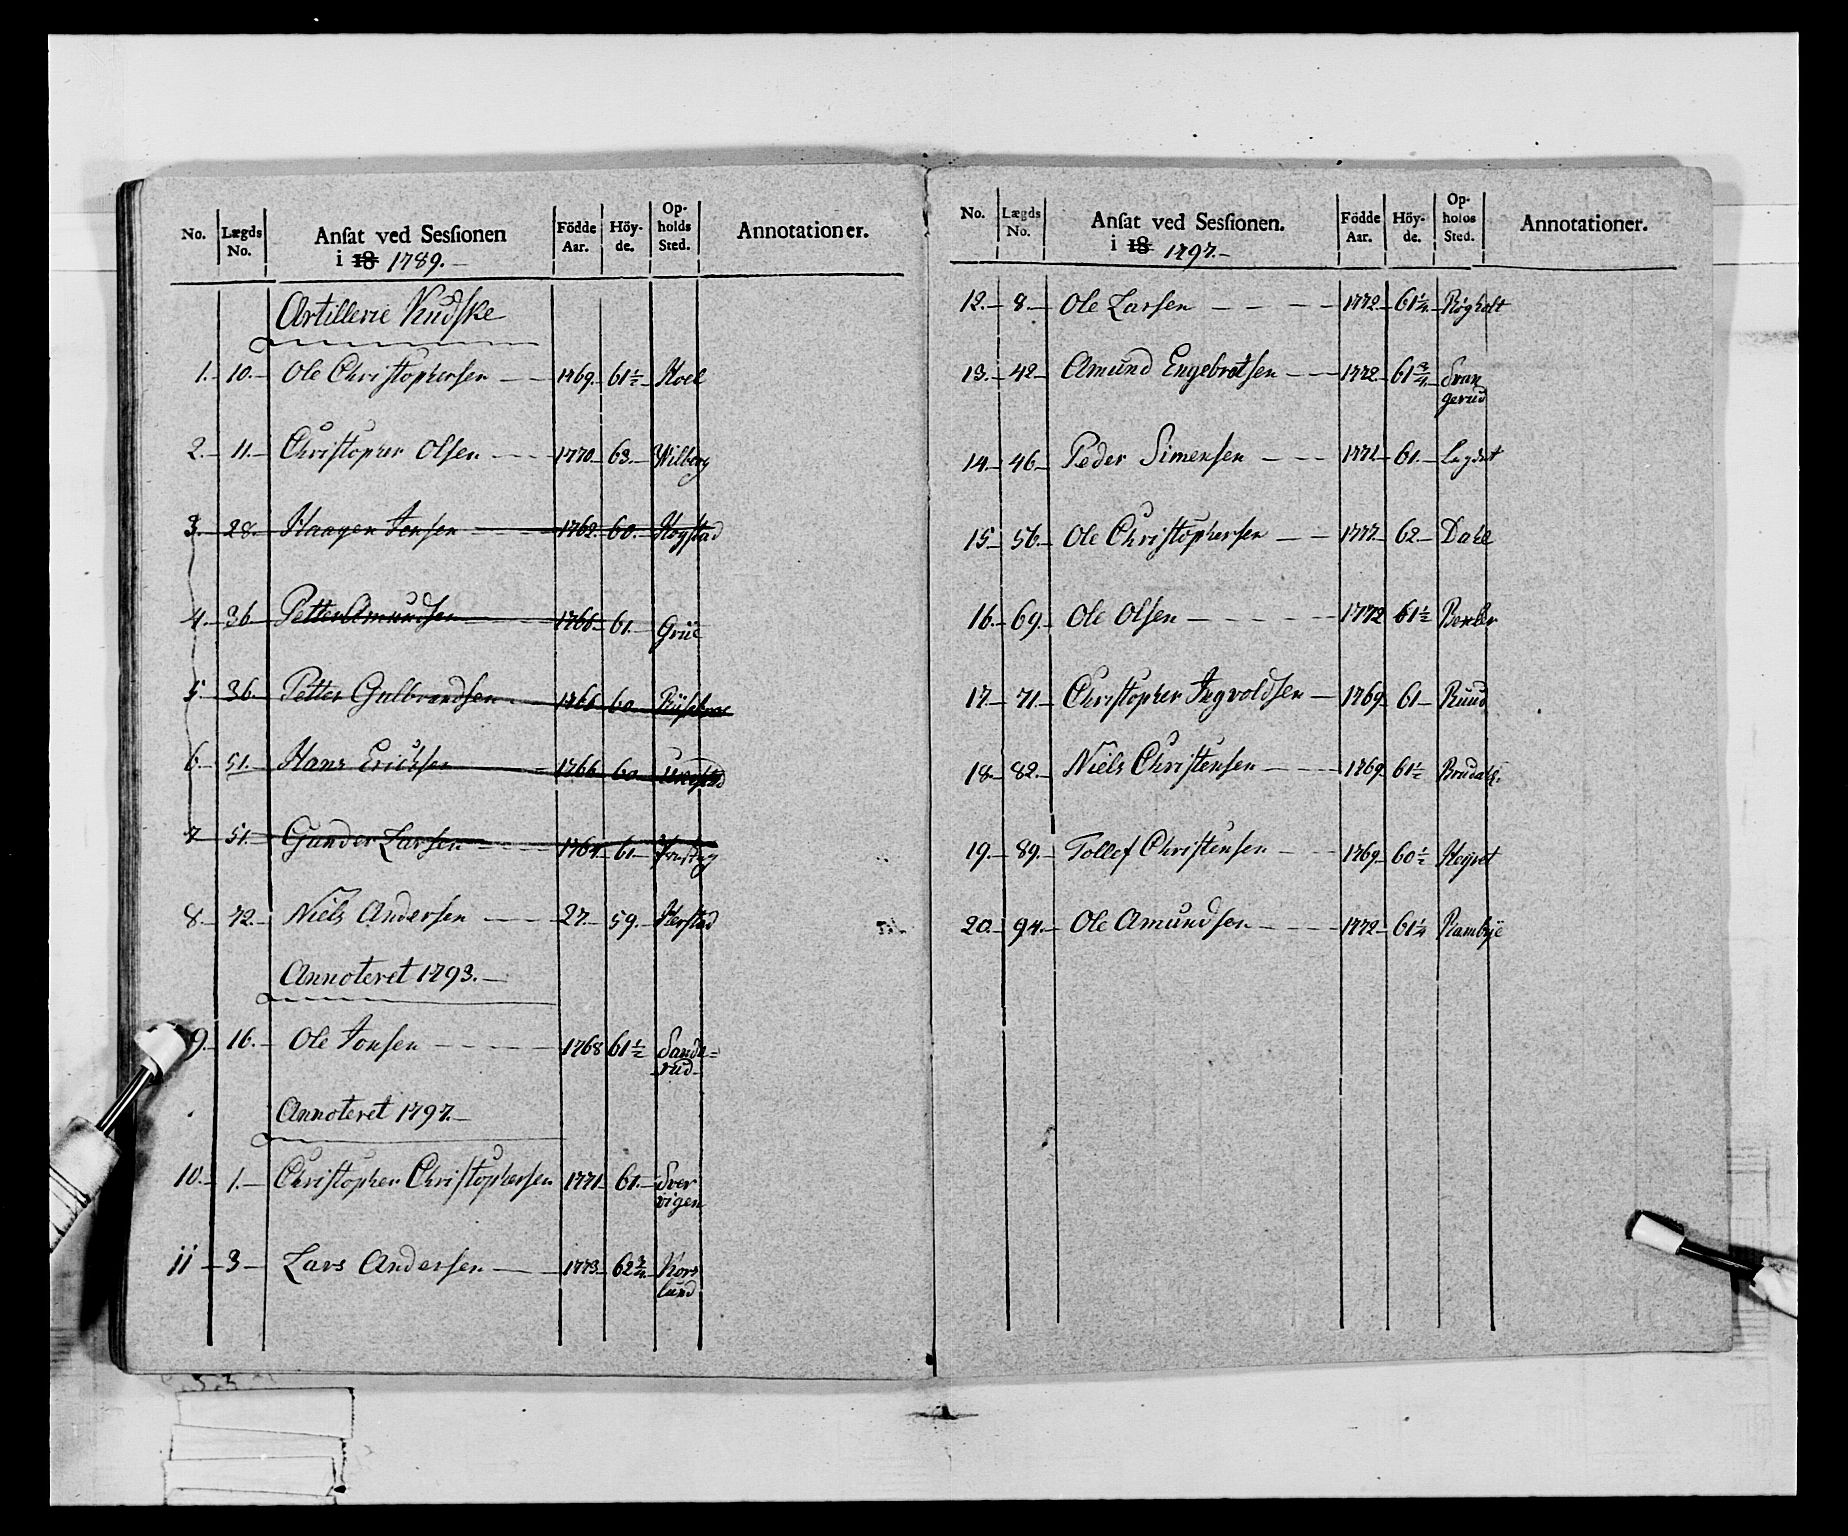 No. Lægds No. Ansat ved Sessionen i 18 1789.- Födde Aar. Höy-de. Op-holds Sted. Annotationer.
Artillerie Kudske
1. 10. Ole Christophersen 1769. 61½ Hoel
2. 11. Christopher Olsen 1770 63. Wilberg
3. 28. Haagen Jensen 1762. 60. Kogstad
4. 36 Petter Amundsen 1766 61. Grüe
5. 36. Petter Gulbrandsen 1766 60
6. 51. Hans Erichsen 1766 60
7 51. Gunder Larsen 1764 61
8 72. Niels Andersen 27. 59. Herstad
Annoteret 1793.-
9. 16. Ole Jonsen 1768 61½ Sande=
rud
Annoteret 1797.-
10. 1. Christopher Christophersen 1771 61. Sver
vigen
11 3 Lars Andersen 1773 62¾ Kors
lund
No. Lægds No. Ansat ved Sessionen. i 18 1797.- Födde Aar. Höy-de. Op-holds Sted. Annotationer.
12. 8. Ole Larsen 1772. 61¼ Røgholt
13. 42 Amund Engebretsen 1772 61¾ Svan
gerud
14. 46. Peder Simensen 1772 61.
15 56. Ole Christophersen 1777. 62. Dahl
16. 69. Ole Olsen 1772 61½
17. 71. Christopher Ingvoldsen 1769 61 Ruud
18. 82. Niels Christensen 1769 61½
19. 89. Tollef Christensen 1769. 60½
20. 94. Ole Amundsen 1772 61¼ Rambye